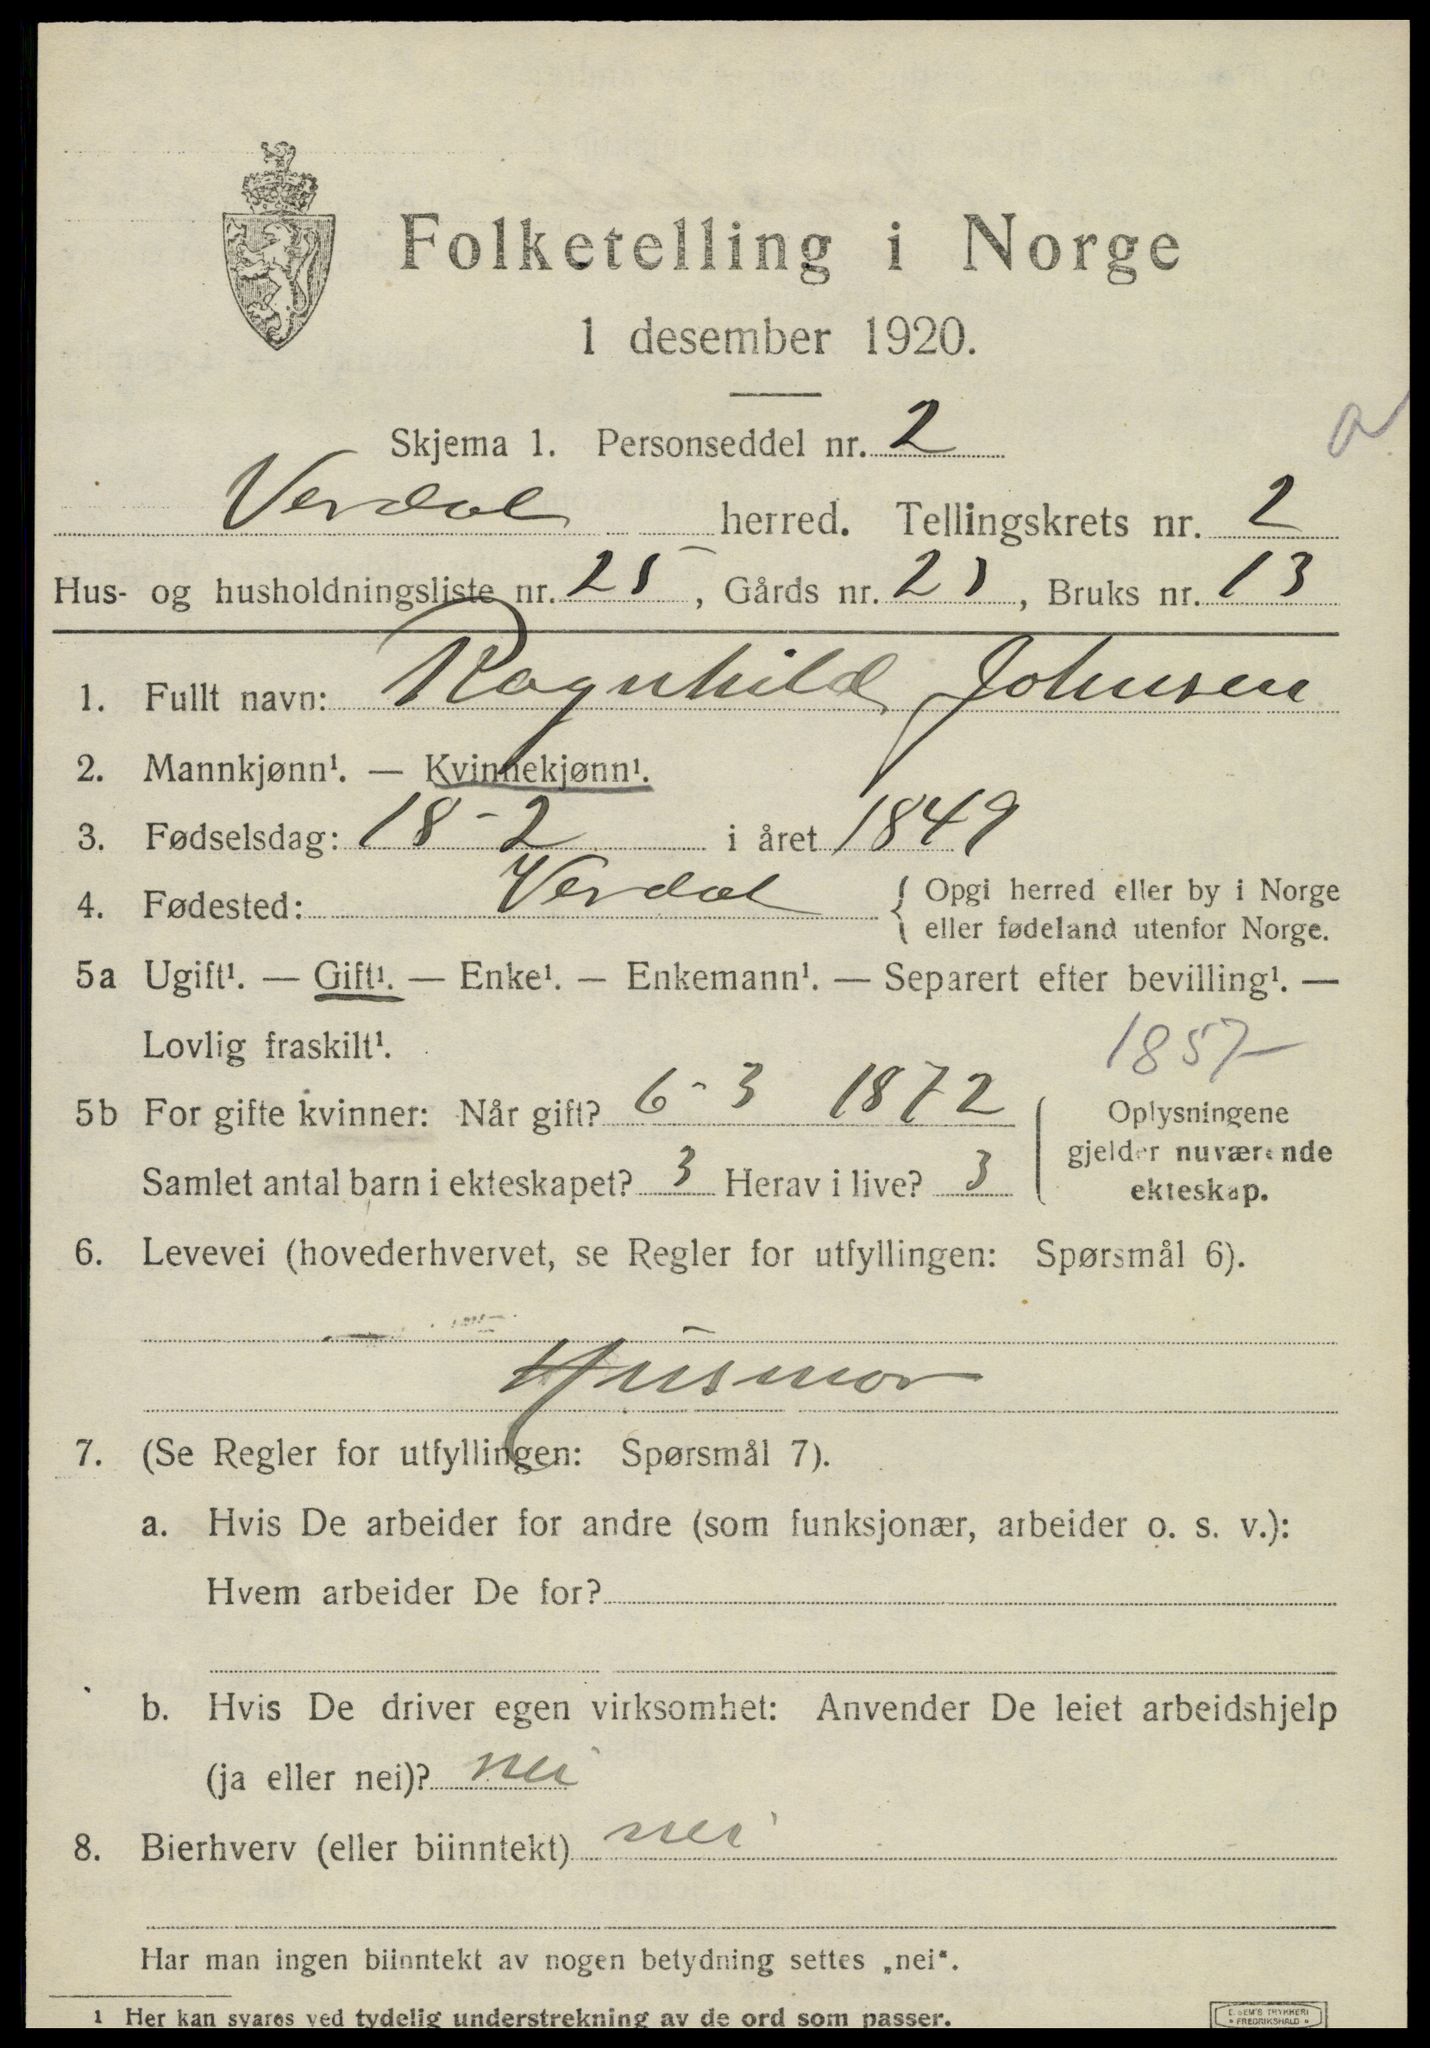 Folketelling i Norge
1 desember 1920.
Skjema 1. Personseddel nr. 2
Verdal herred. Tellingskrets nr. 2
Hus- og husholdningsliste nr. 25, Gårds nr. 23, Bruks nr. 13
1. Fullt navn: Ragnhild Johnsen
2. Mannkjønn¹. — Kvinnekjønn¹.
3. Fødselsdag: 18-2 i året 1849
4. Fødested: Verdal { Opgi herred eller by i Norge
eller fødeland utenfor Norge.
5a Ugift¹. — Gift¹. — Enke¹. — Enkemann¹. — Separert efter bevilling¹. —
Lovlig fraskilt¹.
1857
5b For gifte kvinner: Når gift? 6-3 1872
Samlet antal barn i ekteskapet? 3 Herav i live? 3
Oplysningene
gjelder nuværende
ekteskap.
6. Levevei (hovederhvervet, se Regler for utfyllingen: Spørsmål 6).
Husmor
7. (Se Regler for utfyllingen: Spørsmål 7).
a. Hvis De arbeider for andre (som funksjonær, arbeider o. s. v.):
Hvem arbeider De for?
b. Hvis De driver egen virksomhet: Anvender De leiet arbeidshjelp
(ja eller nei)? nei
8. Bierhverv (eller biinntekt) nei
Har man ingen biinntekt av nogen betydning settes „nei“.
1 Her kan svares ved tydelig understrekning av de ord som passer.
E. SEM'S TRYKKERI
FREDRIKSHALD